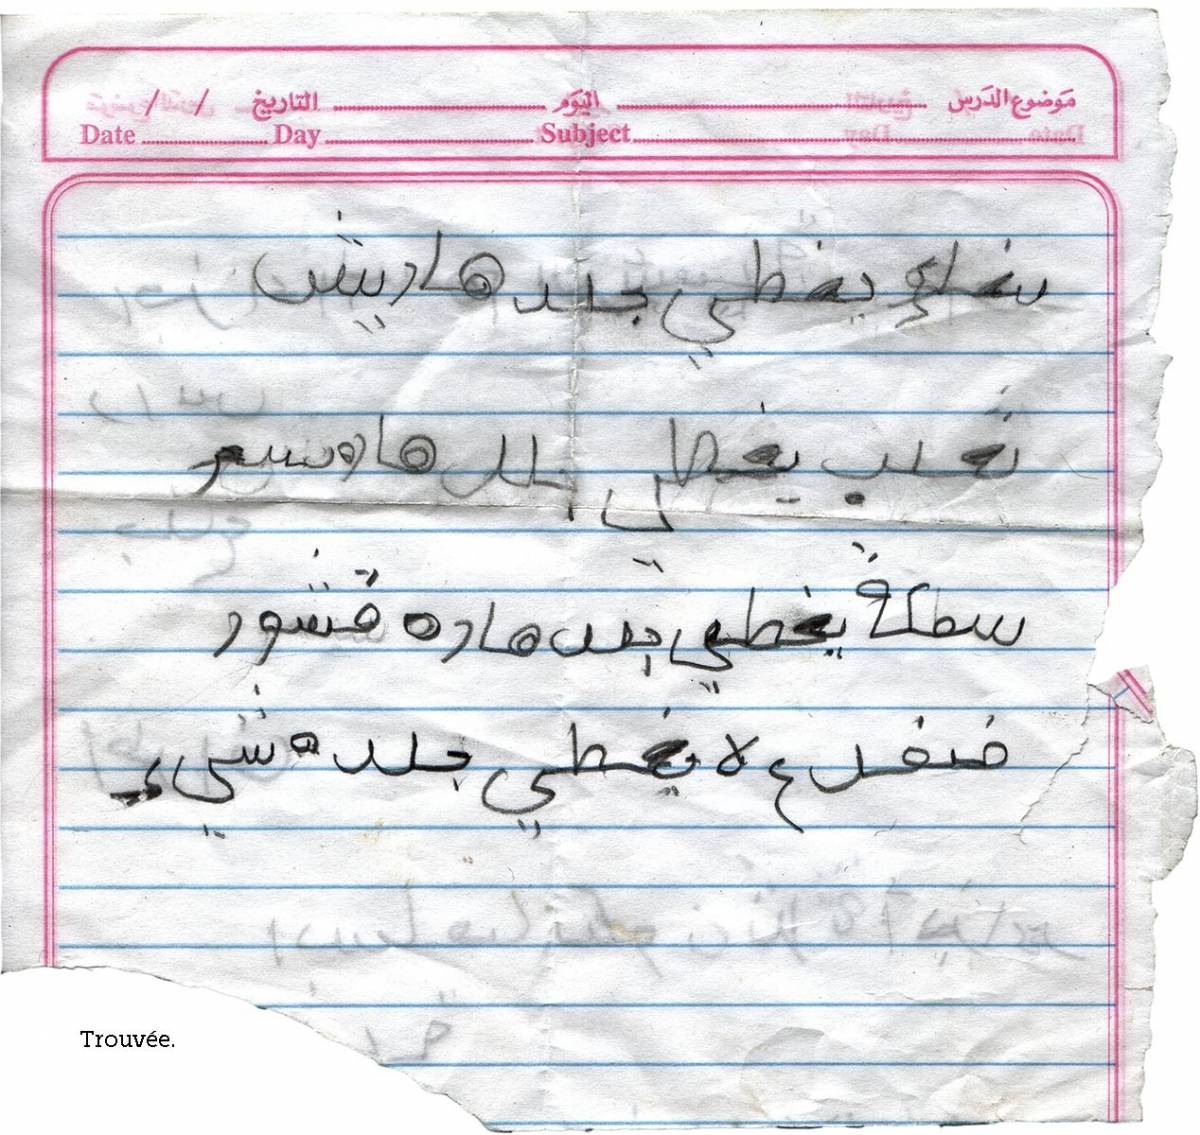 موضوع الدرس اليوم التاريخ / /
Date Day Subject
يغطي جلد هاريش
ثعلب يغطي جلد هاوسعر
سمكة يغطي جلد هاره قشور
ضفدع لا يغطي جلده شيء
Trouvée.